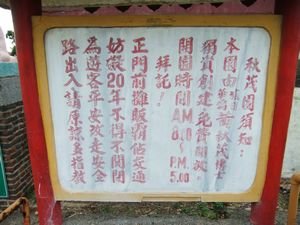 秋茂園須知:
本園由
黃秋茂博士
獨資創建免費開放.
開園時間AM8.00~P.M.5.00
拜託!
正門前攤販霸佔交通
妨礙20年不得不關閉
為遊客平安改走安全
路出入請原諒並指教